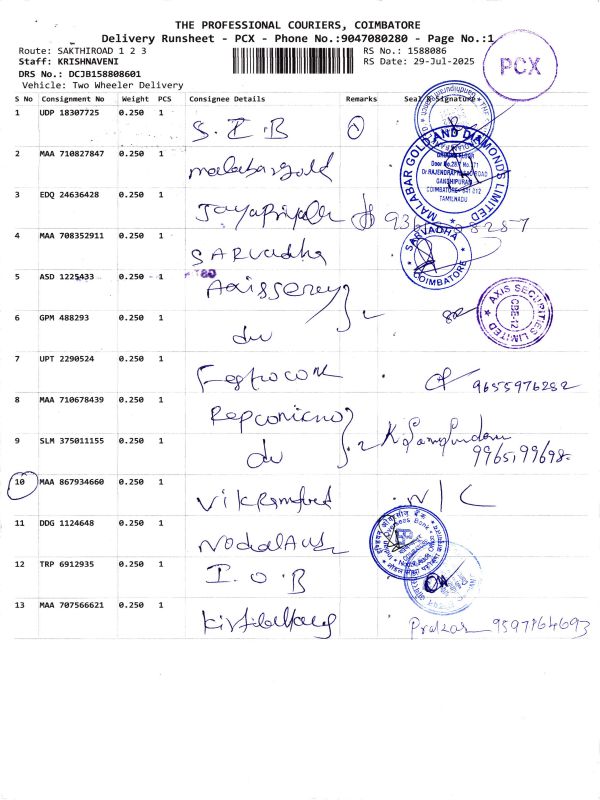 THE PROFESSIONAL COURIERS, COIMBATORE
Delivery Runsheet - PCX - Phone No.:9047080280 - Page No.:1
Route: SAKTHIROAD 1 2 3
RS No.: 1588086
Staff: KRISHNAVENI
RS Date: 29-Jul-2025
DRS No.: DCJB158808601
Vehicle: Two Wheeler Delivery
PCX
S No Consignment No Weight PCS Consignee Details Remarks Seal & Signature
1 UDP 18307725 0.250 1 S.I.B
2 MAA 710827847 0.250 1 malabargold
MALABAR GOLD AND DIAMONDS LIMITED
GROUND FLOOR
Dr.RAJENDRAPRASAD ROAD
GANDHIPURAM
COIMBATORE - 641 012
TAMILNADU
3 EDQ 24636428 0.250 1 Jayapriya
4 MAA 708352911 0.250 1 SARvadha
SARVADHA
COIMBATORE
5 ASD 1225433 0.250 1
6 GPM 488293 0.250 1 du
AXIS SECURITIES LIMITED
CBE-12
7 UPT 2290524 0.250 1 9655976282
8 MAA 710678439 0.250 1
9 SLM 375011155 0.250 1 du
10 MAA 867934660 0.250 1 N/C
11 DDG 1124648 0.250 1
12 TRP 6912935 0.250 1 I.O.B
13 MAA 707566621 0.250 1 9597164693